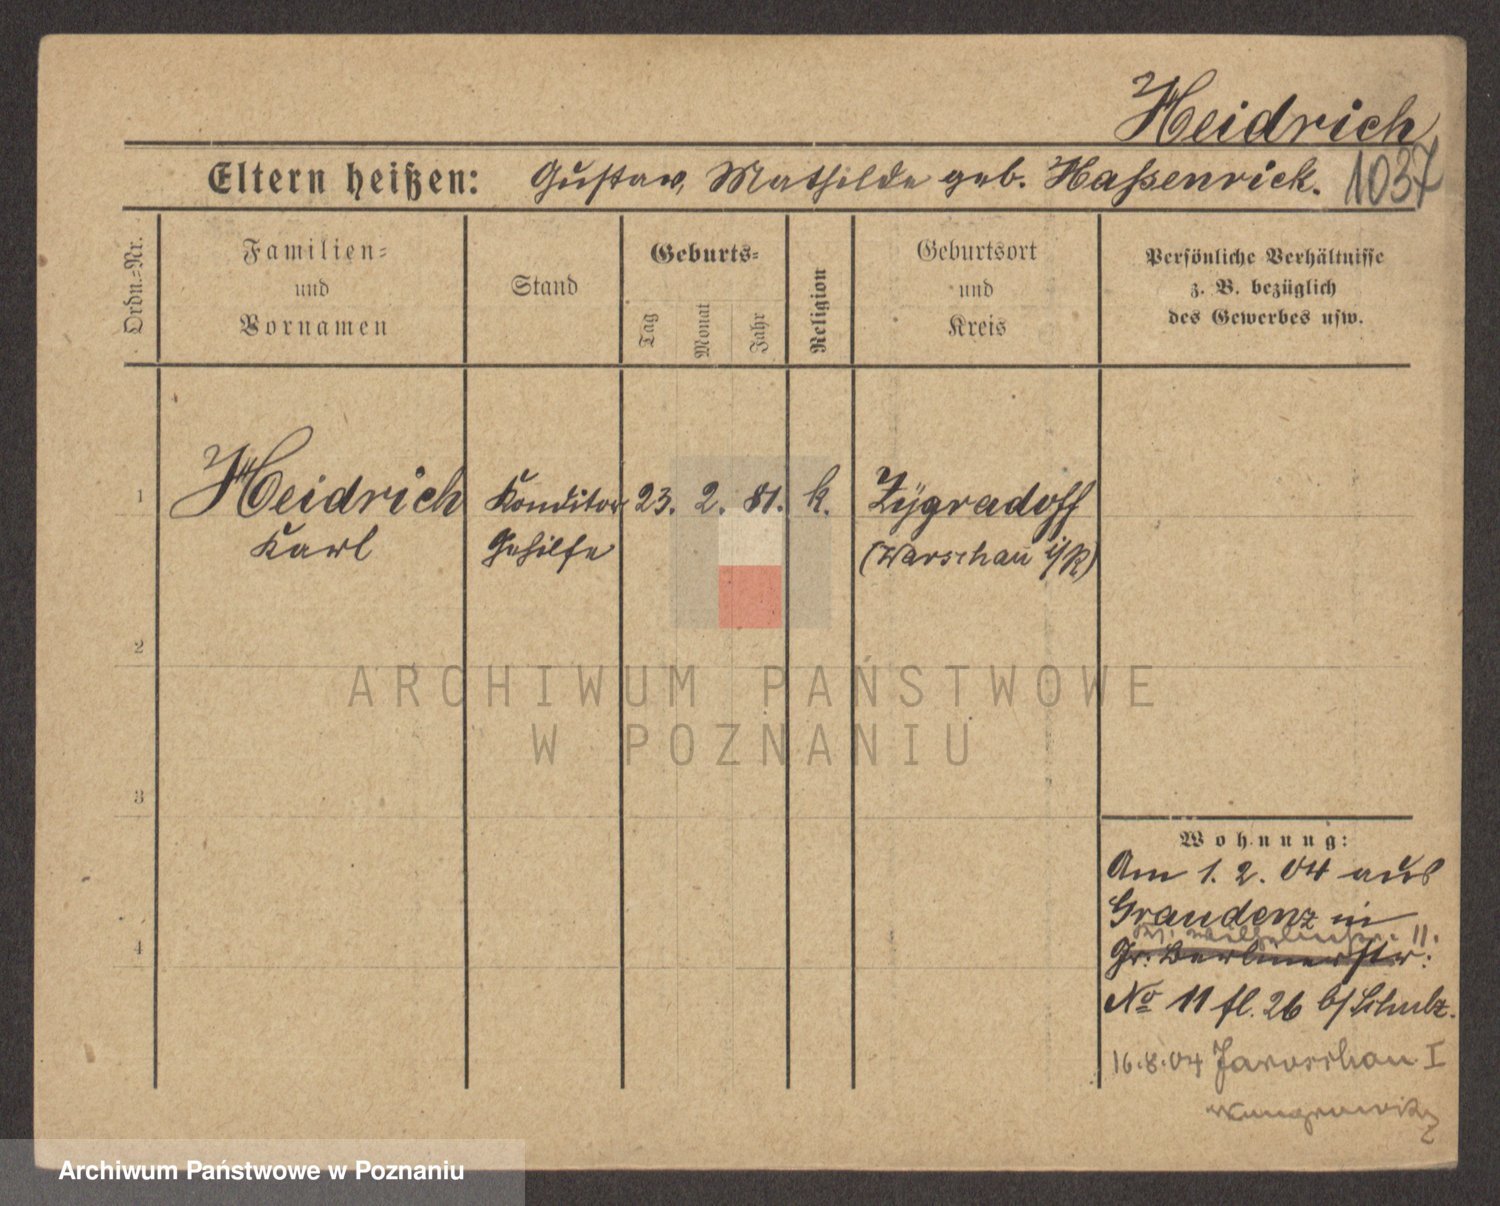 Heidrich
Eltern heißen: Gustav, Mathilde geb. Haßenrick. 1037
Ordn.=Nr.
Familien=
und
Vornamen
Stand
Geburts=
Tag
Monat
Jahr
Religion
Geburtsort
und
Kreis
Persönliche Verhältnisse
z. B. bezüglich
des Gewerbes usw.
1 Heidrich Konditor 23. 2. 81. k. Zÿgradoff
Karl Gehilfe (Warschau i/R)
2
3
4
Wohnung:
Am 1. 2. 04 aus
Graudenz in
Gr. Berlinerstr:
No 11 fl. 26 b/ Schulz.
16.8.04 Jaroschau I
Wongrowitz
ARCHIWUM PAŃSTWOWE
W POZNANIU
Archiwum Państwowe w Poznaniu